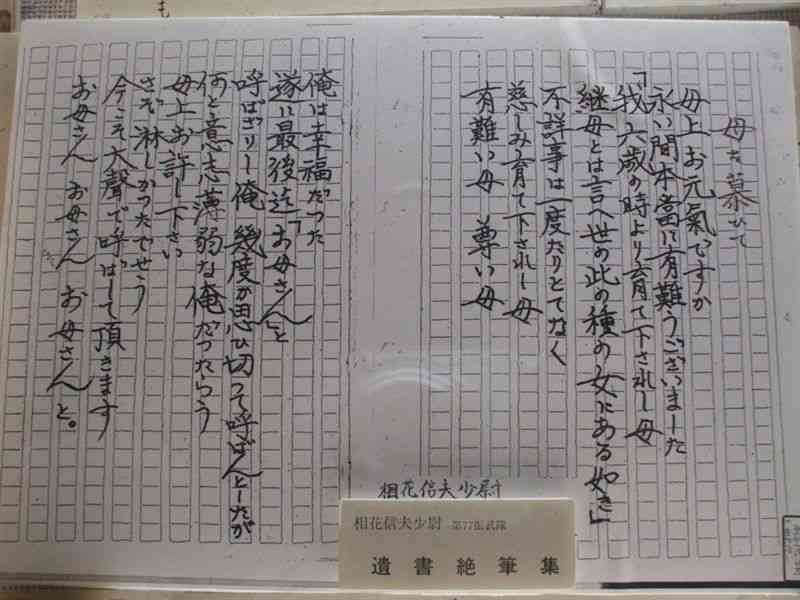 母を慕ひて
母上お元氣ですか
永い間本當に有難うございました
「我六歳の時より育て下されし母
継母とは言へ世の此の種の女にある如き」
不詳事は一度たりとてなく
慈しみ育て下されし母
有難い母 尊い母
俺は幸福だった
遂に最後迄「お母さん」と
呼ばざりし俺 幾度か思ひ切って呼ばんとしたが
何と意志薄弱な俺だったらう
母上お許し下さい
さぞ淋しかったでせう
今こそ大聲で呼ばして頂きます
お母さん お母さん お母さんと。
相花信夫少尉
相花信夫少尉 第77振武隊
遺書絶筆集
も